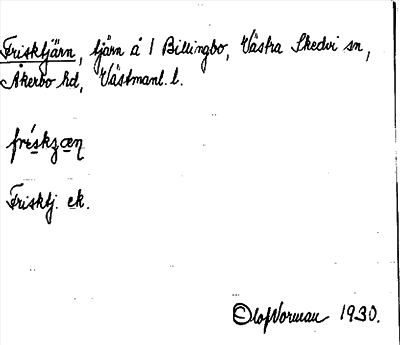 Frisktjärn, tjärn å 1 Billingbo, Västra Skedvi sn,
Åkerbo hd, Västmanl. l.
Frisktj. ek.
Olof Norman 1930.